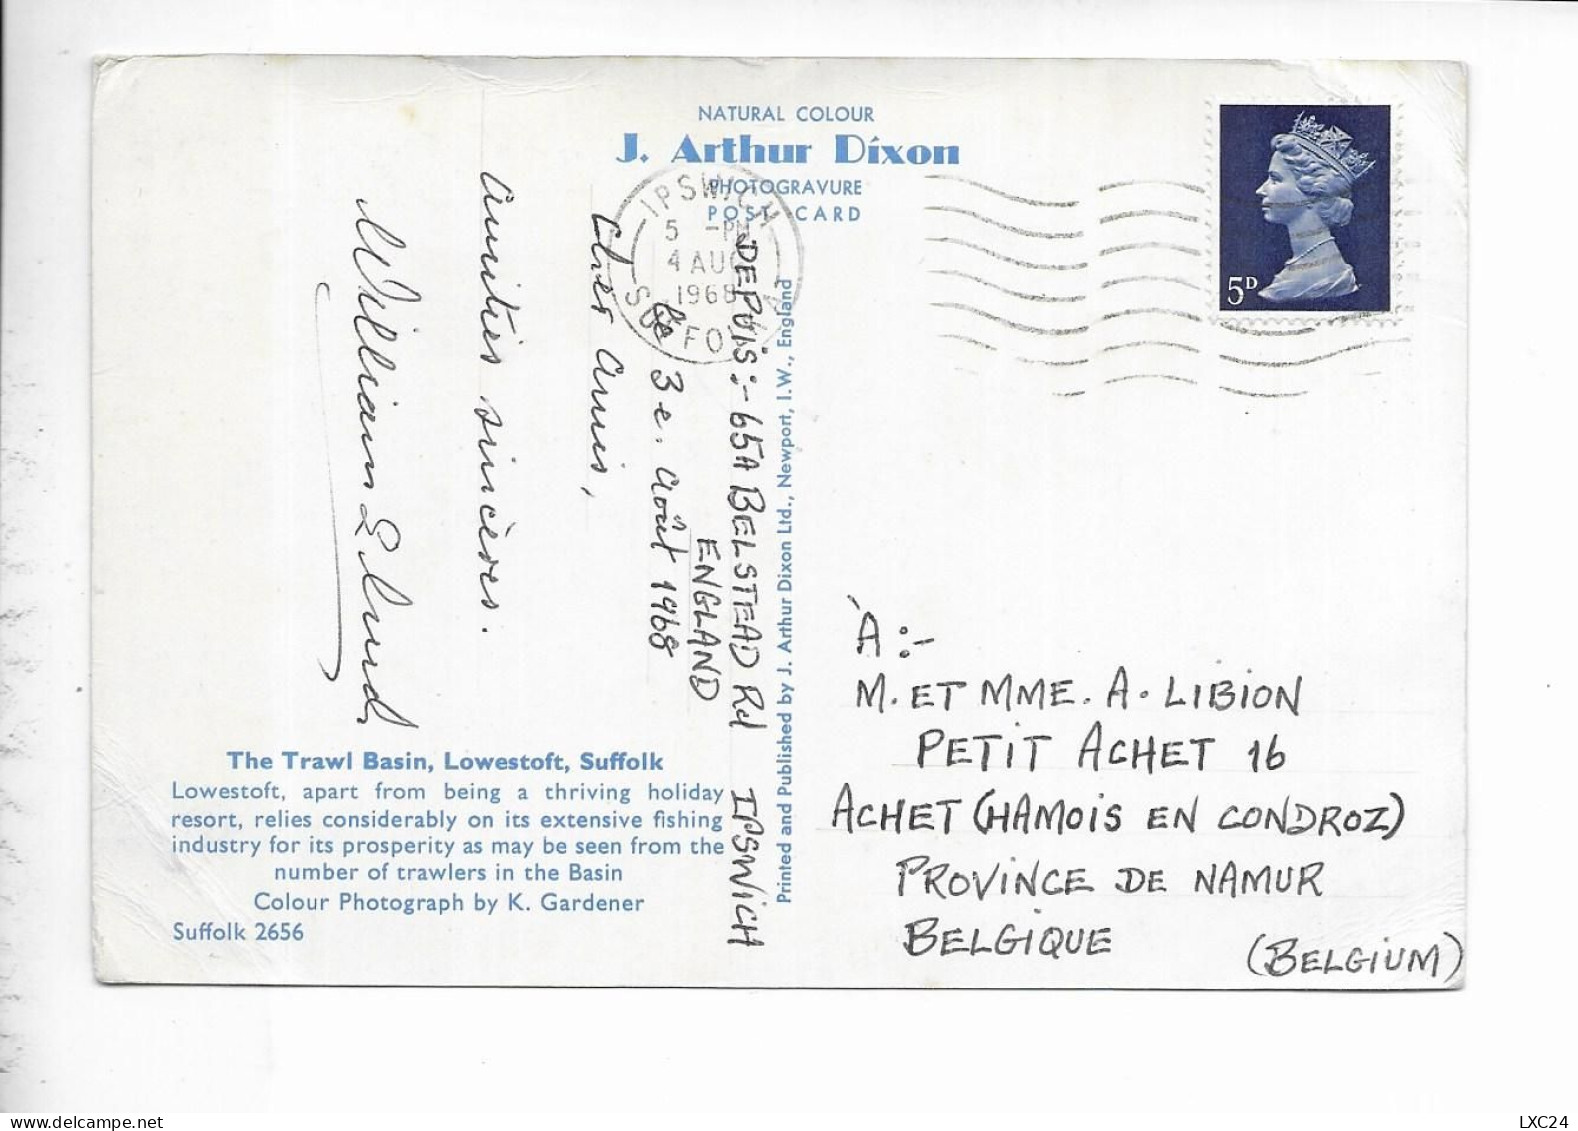 NATURAL COLOUR
J. Arthur Dixon
PHOTOGRAVURE
POST CARD
IPSWICH
5 -PM
4 AUG
1968
SUFFOLK
5D
DEPUIS:- 65A BELSTEAD Rd IPSWICH
ENGLAND
Le 3e. août 1968
Chers amis,
Amitiés sincères.
William
Printed and Published by J. Arthur Dixon Ltd., Newport, I.W., England
The Trawl Basin, Lowestoft, Suffolk
Lowestoft, apart from being a thriving holiday
resort, relies considerably on its extensive fishing
industry for its prosperity as may be seen from the
number of trawlers in the Basin
Colour Photograph by K. Gardener
Suffolk 2656
À:-
M. ET MME. A. LIBION
PETIT ACHET 16
ACHET (HAMOIS EN CONDROZ)
PROVINCE DE NAMUR
BELGIQUE (BELGIUM)
LXC24